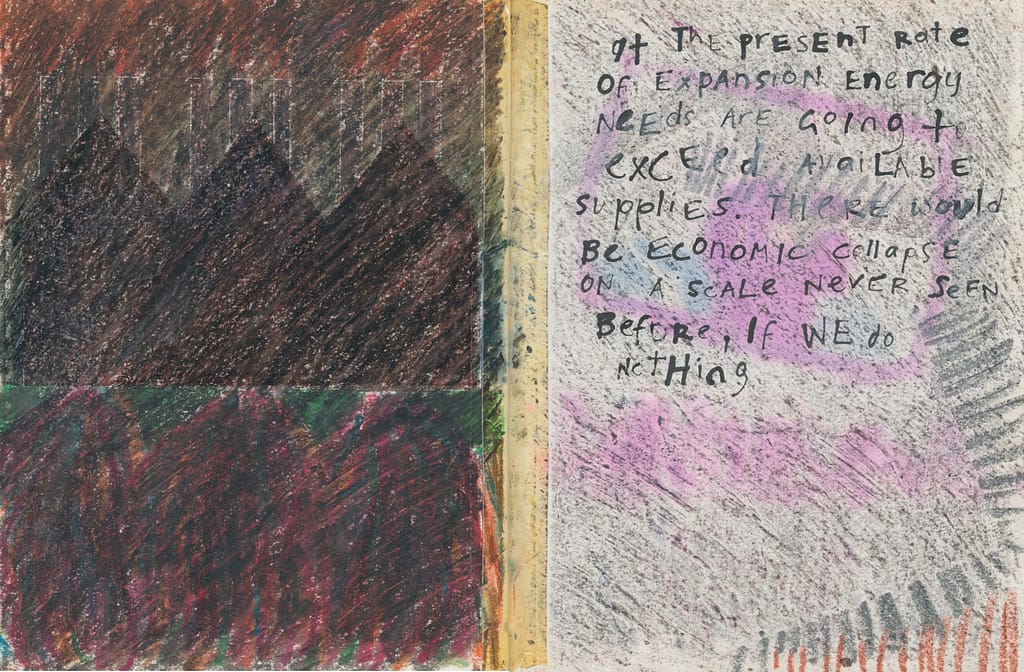 at The present Rate
OF Expansion Energy
NEEds ARE Going to
exceed AvaiLAbLE
supplies. THeRE would
BE ECONOMIC collapse
ON A SCALE NeVER SeEN
BeFoRe, If WE do
NoTHing